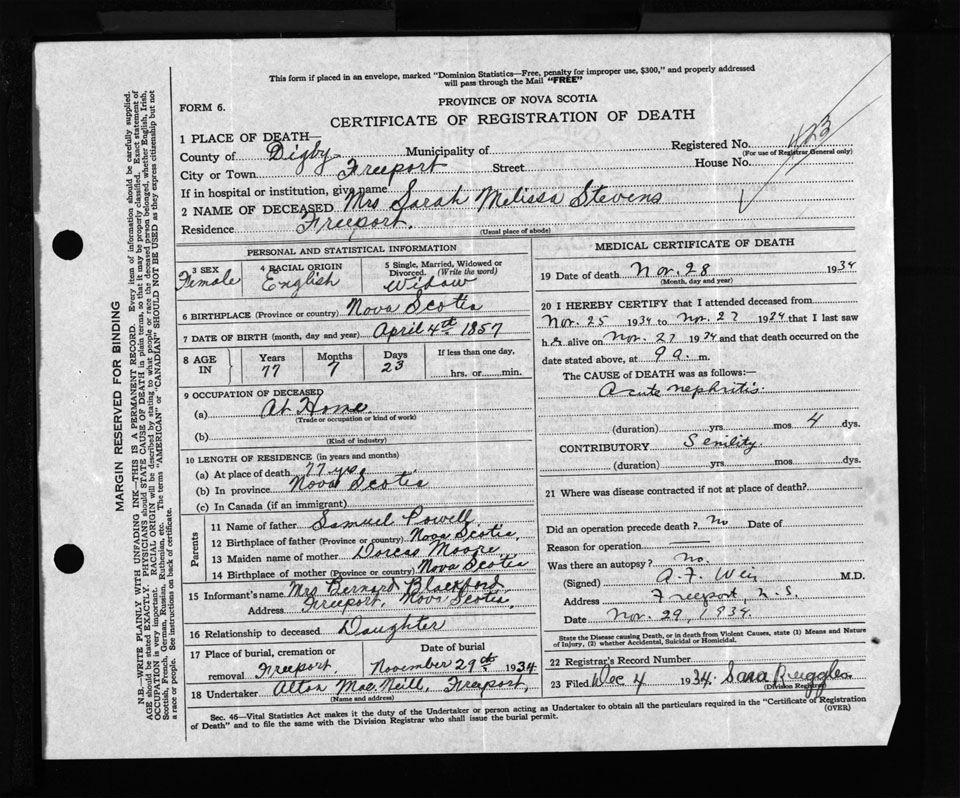 This form if placed in an envelope, marked "Dominion Statistics—Free, penalty for improper use, $300," and properly addressed
will pass through the Mail "FREE"
FORM 6.
PROVINCE OF NOVA SCOTIA
CERTIFICATE OF REGISTRATION OF DEATH
1 PLACE OF DEATH—
Registered No. 423
(For use of Registrar General only)
County of Digby Municipality of
City or Town Freeport Street House No.
If in hospital or institution, give name
2 NAME OF DECEASED Mrs Sarah Melissa Stevens
Residence Freeport.
(Usual place of abode)
PERSONAL AND STATISTICAL INFORMATION
3 SEX 4 RACIAL ORIGIN 5 Single, Married, Widowed or Divorced. (Write the word)
Female English Widow
6 BIRTHPLACE (Province or country) Nova Scotia
7 DATE OF BIRTH (month, day and year) April 4th 1857
8 AGE IN Years Months Days If less than one day,
77 7 23 hrs. or min.
9 OCCUPATION OF DECEASED
(a) At Home
(Trade or occupation or kind of work)
(b)
(Kind of industry)
10 LENGTH OF RESIDENCE (in years and months)
(a) At place of death 77 yrs.
(b) In province Nova Scotia
(c) In Canada (if an immigrant)
Parents
11 Name of father Samuel Powell
12 Birthplace of father (Province or country) Nova Scotia,
13 Maiden name of mother Dorcas Moore
14 Birthplace of mother (Province or country) Nova Scotia
15 Informant's name Mrs Bernard Blackford
Address Freeport, Nova Scotia,
16 Relationship to deceased Daughter
17 Place of burial, cremation or removal Freeport. Date of burial November 29th 1934
18 Undertaker Alton MacNeill, Freeport,
(Name and address)
MEDICAL CERTIFICATE OF DEATH
19 Date of death Nov. 28 1934
(Month, day and year)
20 I HEREBY CERTIFY that I attended deceased from
Nov. 25 1934 to Nov. 27 1934 that I last saw
her alive on Nov. 27 1934 and that death occurred on the
date stated above, at 9 a. m.
The CAUSE of DEATH was as follows:—
Acute nephritis.
(duration) yrs. mos. 4 dys.
CONTRIBUTORY Senility.
(duration) yrs. mos. dys.
21 Where was disease contracted if not at place of death?
Did an operation precede death? No Date of
Reason for operation
Was there an autopsy? No.
(Signed) A. F. Weir M.D.
Address Freeport, N.S.
Date Nov. 29, 1934.
State the Disease causing Death, or in death from Violent Causes, state (1) Means and Nature
of Injury, (2) whether Accidental, Suicidal or Homicidal.
22 Registrar's Record Number
23 Filed Dec 4 1934. Sara Ruggles
(Division Registrar)
Sec. 46—Vital Statistics Act makes it the duty of the Undertaker or person acting as Undertaker to obtain all the particulars required in the "Certificate of Registration
of Death" and to file the same with the Division Registrar who shall issue the burial permit.
(OVER)
MARGIN RESERVED FOR BINDING
N.B.—WRITE PLAINLY WITH UNFADING INK—THIS IS A PERMANENT RECORD. Every item of information should be carefully supplied.
AGE should be stated EXACTLY. PHYSICIANS should STATE CAUSE OF DEATH in plain terms, so that it may be properly classified. Exact statement of
OCCUPATION is very important. RACIAL ORIGIN will be described by stating to what people or race the deceased person belonged, whether English, Irish,
Scottish, French, German, Russian, Ruthenian, etc. The terms "AMERICAN" or "CANADIAN" SHOULD NOT BE USED as they express citizenship but not
a race or people. See instructions on back of certificate.